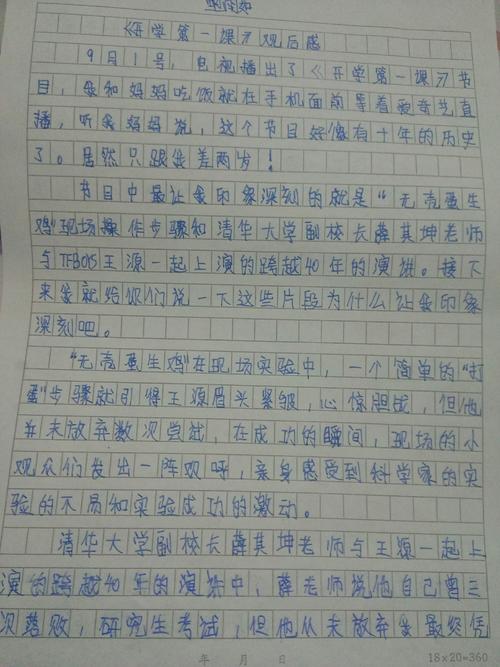 《开学第一课》观后感
9月1号，电视播出了《开学第一课》节
目，我和妈妈吃饭就在手机面前等着爱奇艺直
播，听我妈妈说，这个节目好像有十年的历史
了。居然只跟我差两岁！
节目中最让我印象深刻的就是“无壳蛋生
鸡”现场操作步骤和清华大学副校长薛其坤老师
与TFBOYS王源一起上演的跨越40年的演讲。接下
来我就给你们说一下这些片段为什么让我印象
深刻吧。
“无壳蛋生鸡”在现场实验中，一个简单的“打
蛋”步骤就引得王源眉头紧皱，心惊胆战，但他
并未放弃数次尝试，在成功的瞬间，现场的小
观众们发出一阵欢呼，亲身感受到科学家的实
验的不易和实验成功的激动。
清华大学副校长薛其坤老师与王源一起上
演的跨越40年的演讲中，薛老师说他自己曾三
次落败，研究生考试，但他从未放弃我最终凭
年 月 日
18×20=360